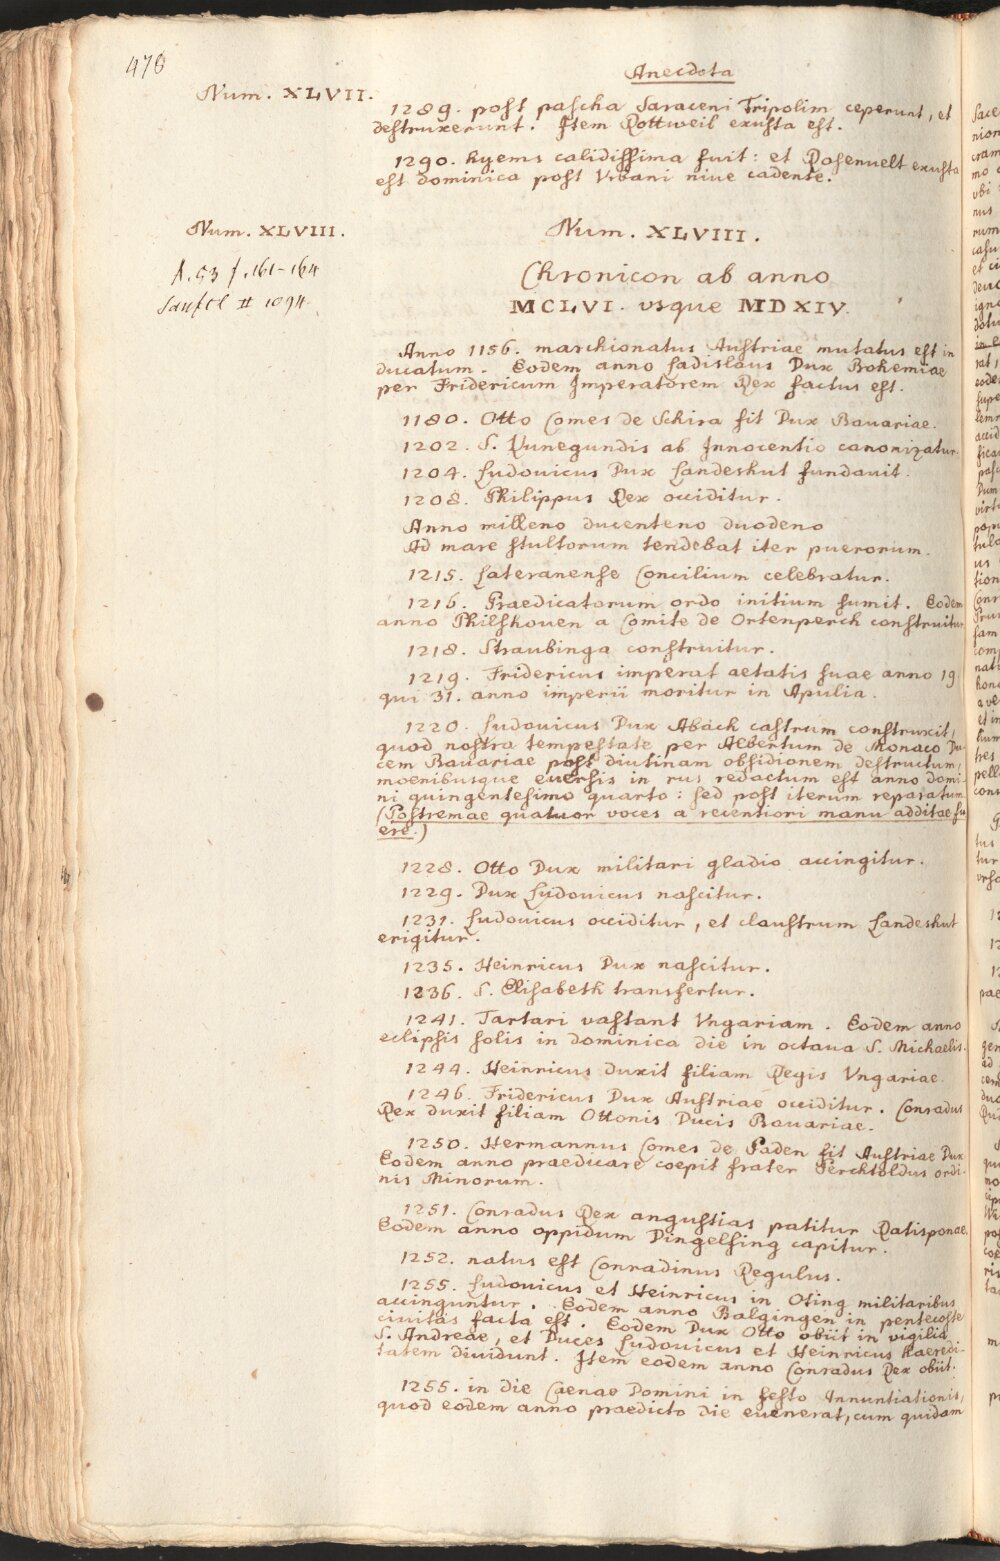 478
Anecdota
Num. XLVII.
1289. post pascha Saraceni Tripolim ceperunt, et
destruxerunt. Item Rottweil exusta est.
1290. hyems calidissima fuit: et Rosenvelt exusta
est dominica post Vrbani niue cadente.
Num. XLVIII.
Num. XLVIII.
A. 53 f. 161-164
II 1094.
Chronicon ab anno
MCLVI. vsque MDXIV.
Anno 1156. marchionatus Austriae mutatus est in
ducatum. Eodem anno Ladislaus Dux Bohemiae
per Fridericum Imperatorem Rex factus est.
1180. Otto Comes de Schira fit Dux Bauariae.
1202. S. Kunegundis ab Innocentio canonizatur.
1204. Ludouicus Dux Landeshut fundauit.
1208. Philippus Rex occiditur.
Anno milleno ducenteno duodeno
Ad mare stultorum tendebat iter puerorum.
1215. Lateranense Concilium celebratur.
1216. Praedicatorum ordo initium sumit. Eodem
anno Philshouen a Comite de Ortenperch construitur
1218. Straubinga construitur.
1219. Fridericus imperat aetatis suae anno 19
qui 31. anno imperii moritur in Apulia.
1220. Ludouicus Dux Abach castrum construxit,
quod nostra tempestate per Albertum de Monaco Du-
cem Bauariae post diutinam obsidionem destructum,
moenibusque euersis in rus redactum est anno domi-
ni quingentesimo quarto: sed post iterum reparatum
(Postremae quatuor voces a recentiori manu additae fu
ere.)
1228. Otto Dux militari gladio accingitur.
1229. Dux Ludouicus nascitur.
1231. Ludouicus occiditur, et claustrum Landeshut
erigitur.
1235. Heinricus Dux nascitur.
1236. S. Elisabeth transfertur.
1241. Tartari vastant Vngariam. Eodem anno
eclipsis solis in dominica die in octaua S. Michaelis.
1244. Heinricus duxit filiam Regis Vngariae.
1246. Fridericus Dux Austriae occiditur. Conradus
Rex duxit filiam Ottonis Ducis Bauariae.
1250. Hermannus Comes de Paden fit Austriae Dux
Eodem anno praedicare coepit frater Perchtoldus ordi-
nis Minorum.
1251. Conradus Rex angustias patitur Ratisponae.
Eodem anno oppidum Dingelfing capitur.
1252. natus est Conradinus Regulus.
1255. Ludouicus et Heinricus in Oting militaribus
accinguntur. Eodem anno Balgingen in pentecoste
ciuitas facta est. Eodem Dux Otto obiit in vigilia
S. Andreae, et Duces Ludouicus et Heinricus haeredi-
tatem diuidunt. Item eodem anno Conradus Rex obiit.
1255. in die Caenae Domini in festo Annuntiationis,
quod eodem anno praedicto die euenerat, cum quidam